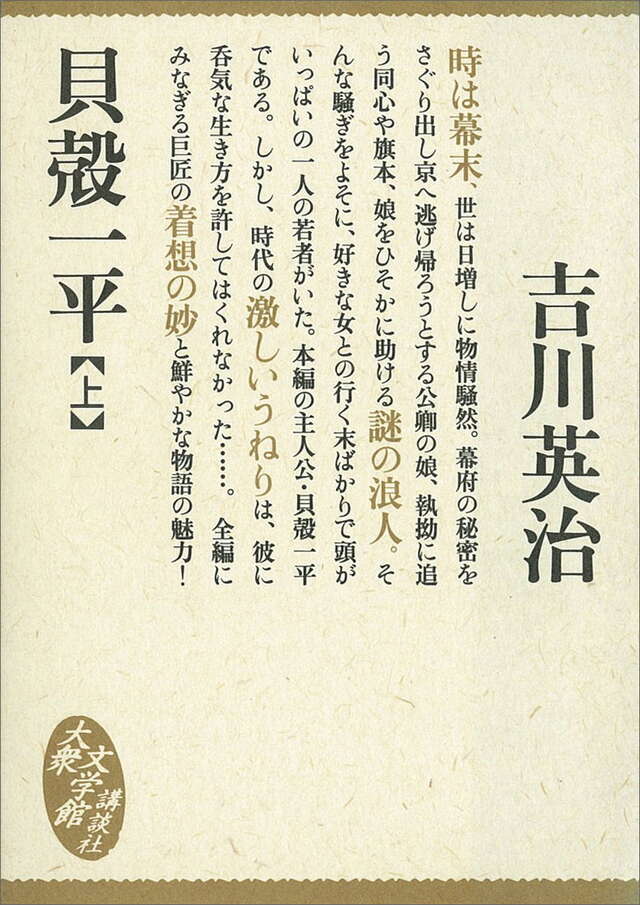 吉川英治
時は幕末、世は日増しに物情騒然。幕府の秘密を
さぐり出し京へ逃げ帰ろうとする公卿の娘、執拗に追
う同心や旗本、娘をひそかに助ける謎の浪人。そ
んな騒ぎをよそに、好きな女との行く末ばかりで頭が
いっぱいの一人の若者がいた。本編の主人公・貝殻一平
である。しかし、時代の激しいうねりは、彼に
呑気な生き方を許してはくれなかった……。全編に
みなぎる巨匠の着想の妙と鮮やかな物語の魅力！
貝殻一平【上】
大衆
文学館
講談社